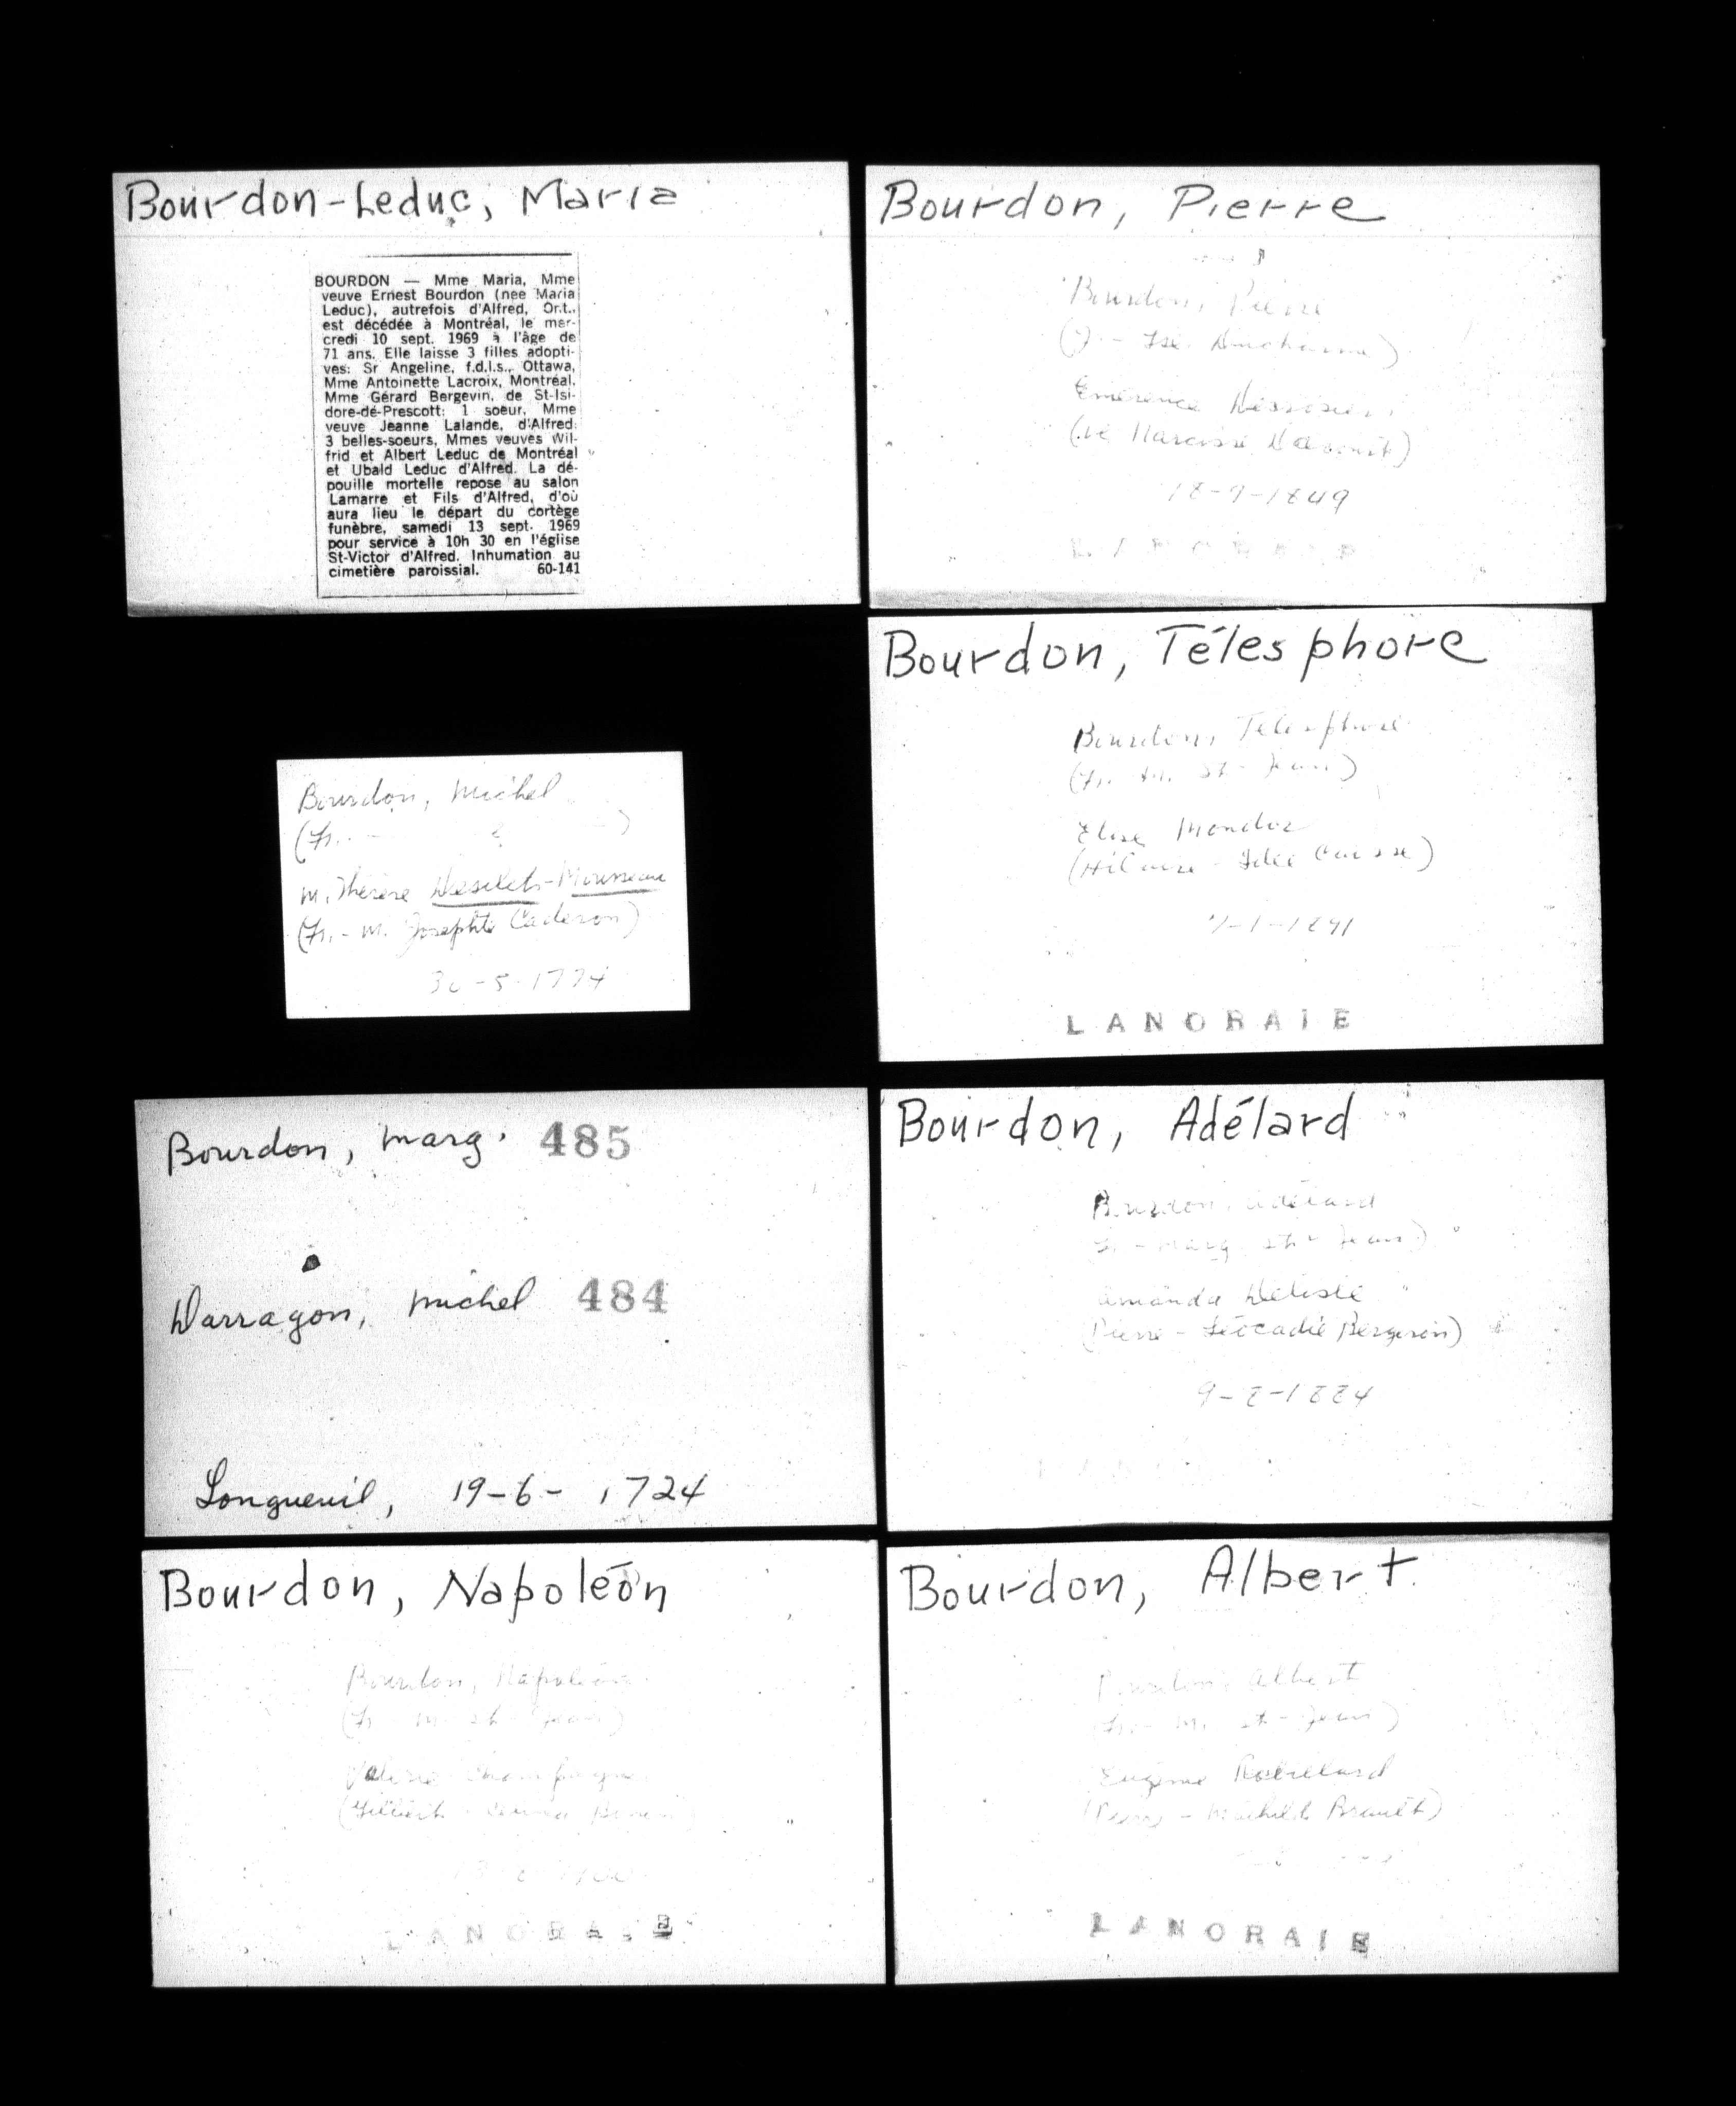 Bourdon-Leduc, Maria
BOURDON — Mme Maria, Mme
veuve Ernest Bourdon (nee Maria
Leduc), autrefois d'Alfred, Ont.,
est décédée à Montréal, le mer-
credi 10 sept. 1969 à l'âge de
71 ans. Elle laisse 3 filles adopti-
ves: Sr Angeline, f.d.l.s., Ottawa,
Mme Antoinette Lacroix, Montréal,
Mme Gérard Bergevin, de St-Isi-
dore-de-Prescott; 1 soeur, Mme
veuve Jeanne Lalande, d'Alfred;
3 belles-soeurs, Mmes veuves Wil-
frid et Albert Leduc de Montréal
et Ubald Leduc d'Alfred. La dé-
pouille mortelle repose au salon
Lamarre et Fils d'Alfred, d'où
aura lieu le départ du cortège
funèbre, samedi 13 sept. 1969
pour service à 10h 30 en l'église
St-Victor d'Alfred. Inhumation au
cimetière paroissial. 60-141
Bourdon, Michel
(Fr. - )
M. Thérèse Desilets-Mousseau
(Fr. - M. Josephte Caderon)
30-5-1774
Bourdon, Marg. 485
Darragon, Michel 484
Longueuil, 19-6-1724
Bourdon, Napoléon
Bourdon, Napoléon
(Fr. M. St-Jean)
Champagne
LANORAIE
Bourdon, Pierre
Bourdon, Pierre
Ducharme)
Emérence
(ve Narcisse
18-9-1849
Bourdon, Télesphore
Bourdon, Télesphore
(Fr. M. St-Jean)
Elise Mondor
(Hilaire - Caisse)
7-1-1891
LANORAIE
Bourdon, Adélard
Bourdon, Adélard
Fr - Marg St-Jean)
Amanda Delisle
(Pierre - Léocadie Bergevin)
9-2-1884
Bourdon, Albert
Bourdon, Albert
(Fr. - M. St-Jean)
Eugénie Robillard
(Pierre - Mathilde Brault)
LANORAIE